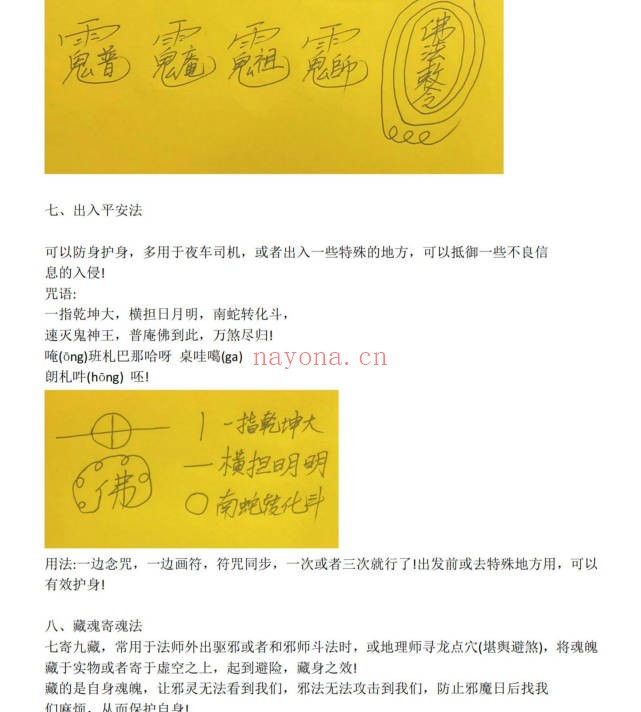 佛法敕令
七、出入平安法
可以防身护身，多用于夜车司机，或者出入一些特殊的地方，可以抵御一些不良信
息的入侵!
咒语:
一指乾坤大，横担日月明，南蛇转化斗，
速灭鬼神王，普庵佛到此，万煞尽归!
唵(ōng)班札巴那哈呀 桌哇噶(ga)
朗札吽(hōng) 呸!
nayona.cn
一指乾坤大
横担明明
佛
南蛇转化斗
用法:一边念咒，一边画符，符咒同步，一次或者三次就行了!出发前或去特殊地方用，可以
有效护身!
八、藏魂寄魂法
七寄九藏，常用于法师外出驱邪或者和邪师斗法时，或地理师寻龙点穴(堪舆避煞)，将魂魄
藏于实物或者寄于虚空之上，起到避险，藏身之效!
藏的是自身魂魄，让邪灵无法看到我们，邪法无法攻击到我们，防止邪魔日后找我
们麻烦，从而保护自身!